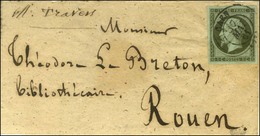 Monsieur
Théodore Le Breton,
bibliothécaire,
Rouen